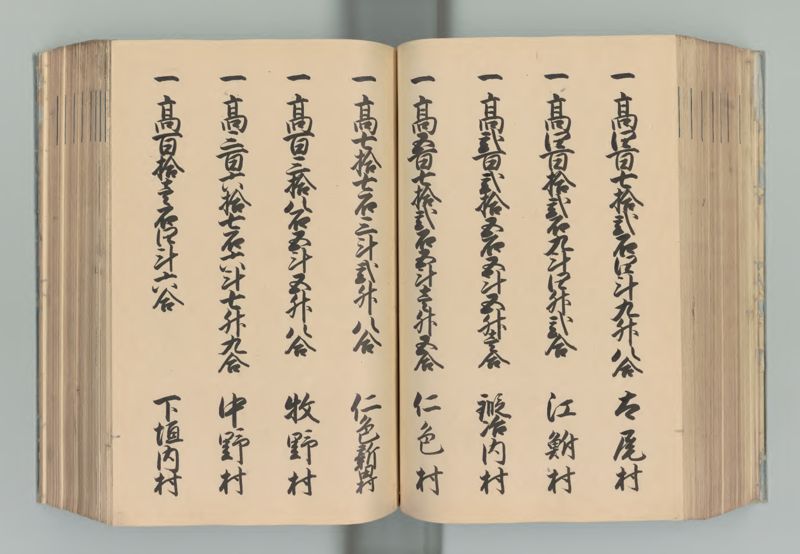 一 高四百七拾弐石四斗九升八合 古尾村
一 高四百拾弐石九斗四升弐合 江鮒村
一 高弐百弐拾五石五斗五升壱合 鍛冶内村
一 高五百七拾弐石五斗壱升五合 仁色村
一 高七拾七石三斗弐升八合 仁色新田村
一 高百三拾八石五斗五升八合 牧野村
一 高三百六拾七石六斗七升九合 中野村
一 高百拾壱石四斗六合 下垣内村